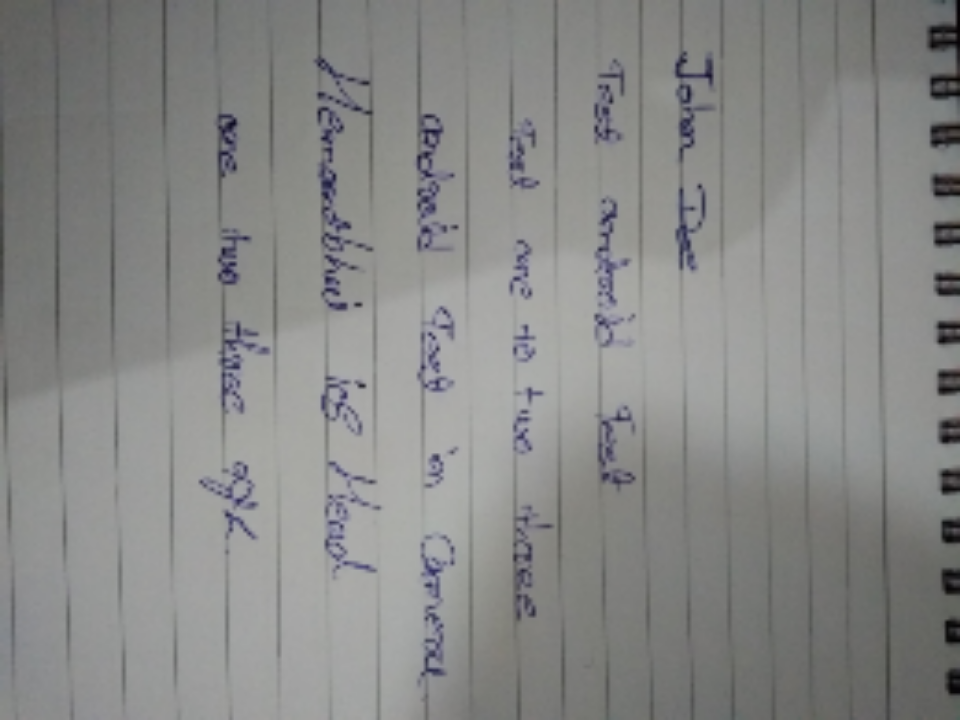 John Doe
Test android Test
Test one to two three
android Test in Camera
Hemantbhai is Head
one two three apk